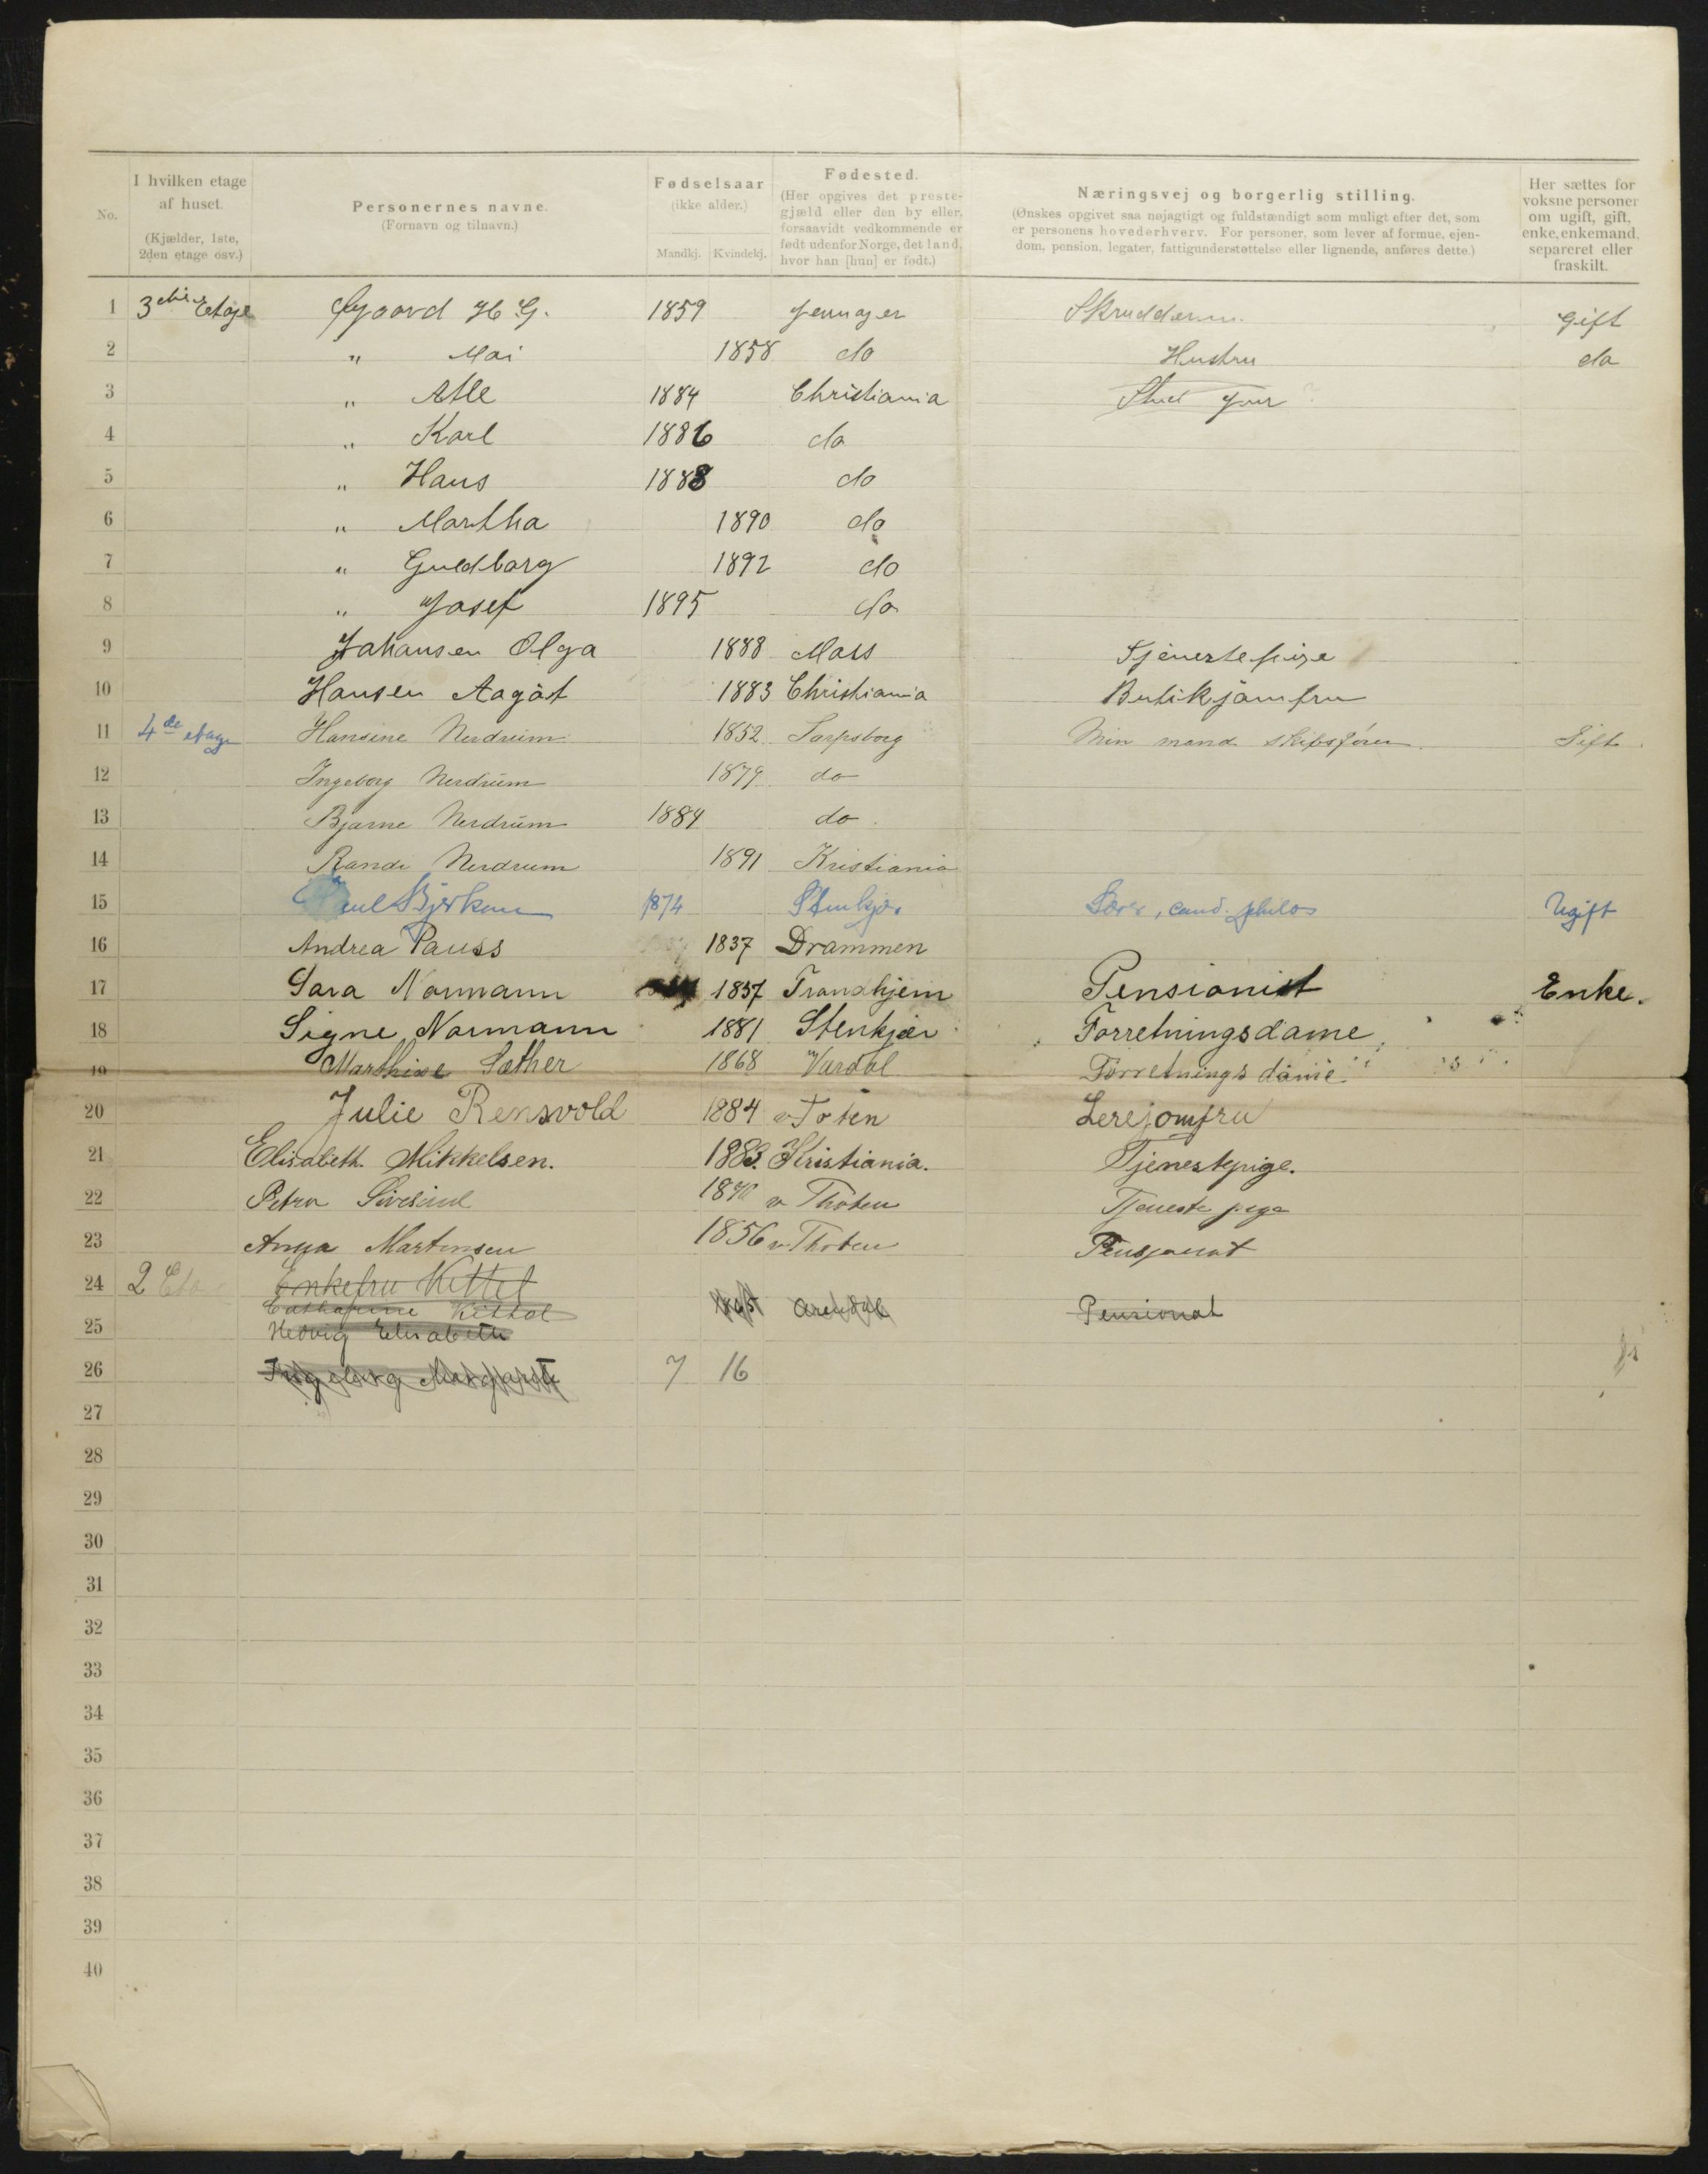 No.
I hvilken etage af huset. (Kjælder, 1ste, 2den etage osv.)
Personernes navne. (Fornavn og tilnavn.)
Fødselsaar (ikke alder.) Mandkj. Kvindekj.
Fødested. (Her opgives det prestegjæld eller den by eller, forsaavidt vedkommende er født udenfor Norge, det land, hvor han [hun] er født.)
Næringsvej og borgerlig stilling. (Ønskes opgivet saa nøjagtigt og fuldstændigt som muligt efter det, som er personens hovederhverv. For personer, som lever af formue, ejendom, pension, legater, fattigunderstøttelse eller lignende, anføres dette.)
Her sættes for voksne personer om ugift, gift, enke, enkemand, separeret eller fraskilt.
1 3die Etage H. G. 1859 Skrædderm. Gift
2 " Mai 1858 do Hustru do
3 " Atle 1884 Christiania Stud
4 " Karl 1886 do
5 " Hans 1888 do
6 " Martha 1890 do
7 " Guldborg 1892 do
8 " Josef 1895 do
9 Johansen Olga 1888 Moss Tjenestepige
10 Hansen Aagot 1883 Christiania Butikjomfru
11 4de etage Hansine Nerdrum 1852 Sarpsborg Min mand skibsfører. Gift.
12 Ingeborg Nerdrum 1879 do
13 Bjarne Nerdrum 1884 do.
14 Randi Nerdrum 1891 Kristiania
15 1874 Stenkjær Lærer, cand. philos Ugift
16 Andrea Pauss 1837 Drammen
17 Sara Normann 1837 Trondhjem Pensionist Enke.
18 Signe Normann 1881 Stenkjær Forretningsdame
19 Marthine Sæther 1868 Vardal Forretningsdame
20 Julie Rensvold 1884 v Toten Lerejomfru
21 Elisabeth Mikkelsen. 1883. Kristiania. Tjenestepige.
22 Petra 18 v Thoten Tjenestepige
23 Anna Martinsen 1856 v. Thoten Pensjonat
24 2 Eta Enkefru Kittel
Catharine Kittel Arendal Pensionat
25 Hedvig Elisabeth
26 Ingeborg Margrete 7 16
27
28
29
30
31
32
33
34
35
36
37
38
39
40